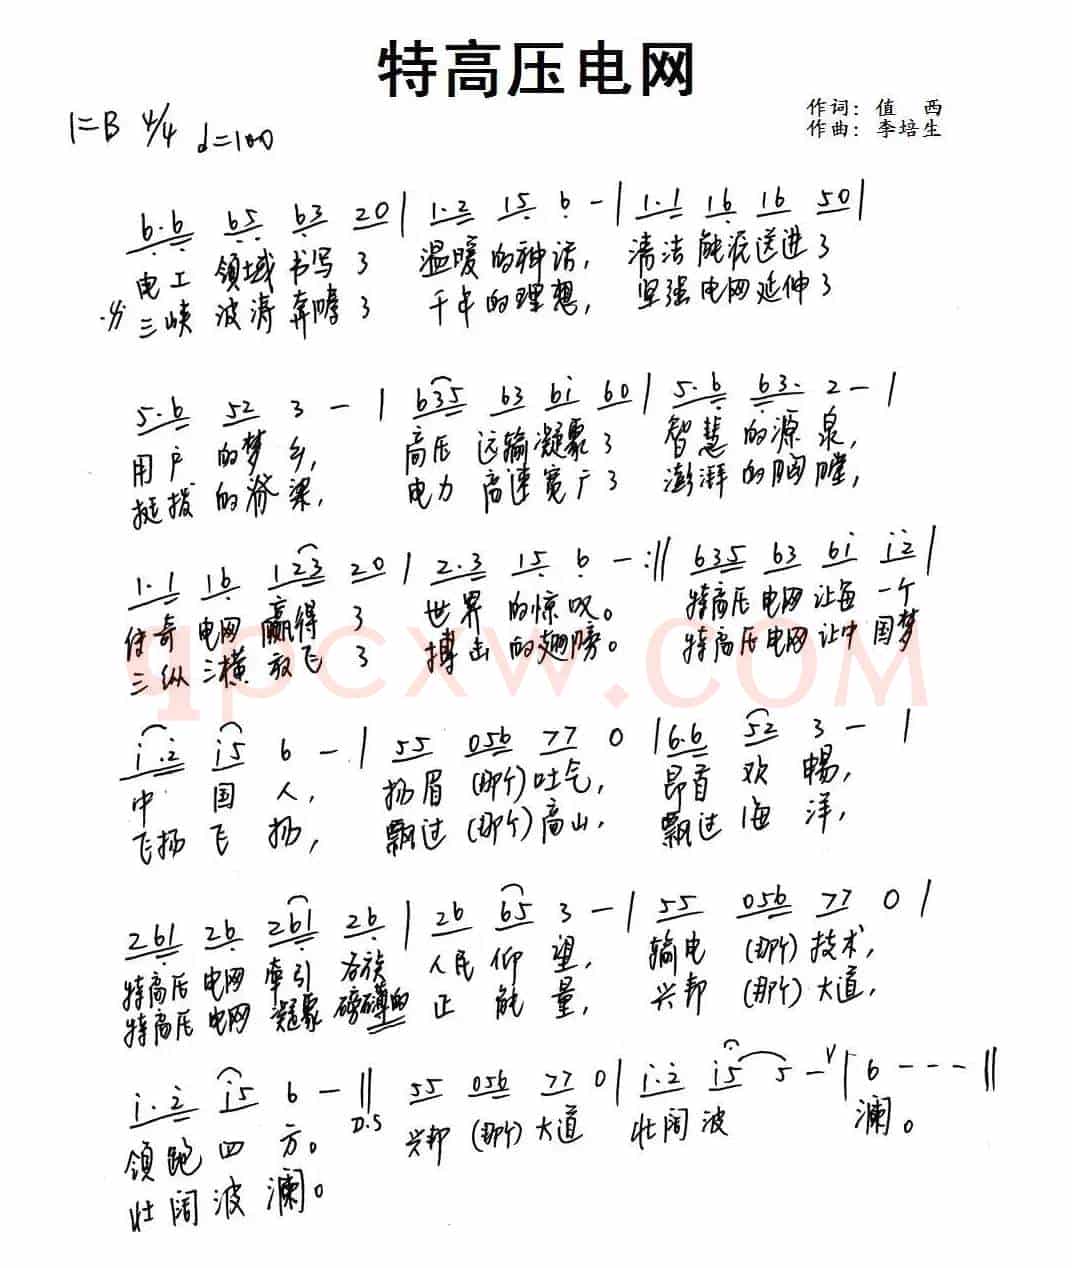 特高压电网
作词：值 西
1=B 4/4 ♩=100
作曲：李培生
6·6 65 63 20 | 1·2 15 6 - | 1·1 16 16 50 |
电工 领域 书写了 温暖的神话， 清洁能源送进了
三峡 波涛 奔腾了 千年的理想， 坚强电网延伸了
5·6 52 3 - | 635 63 6i 60 | 5·6 63· 2 - |
用户 的梦乡， 高压 运输凝聚了 智慧 的源泉，
挺拔 的脊梁， 电力 高速宽广了 澎湃 的胸膛，
1·1 16 123 20 | 2·3 15 6 - :‖ 635 63 6i i2 |
传奇 电网 赢得 了 世界 的惊叹。 特高压 电网 让每一个
三纵 三横 放飞 了 搏击 的翅膀。 特高压 电网 让中国梦
i·2 i5 6 - | 55 056 77 0 | 6·6 52 3 - |
中 国 人， 扬眉 (那个)吐气， 昂首 欢 畅，
飞扬 飞 扬， 飘过 (那个)高山， 飘过 海 洋，
261 26 261 26 | 26 65 3 - | 55 056 77 0 |
特高压 电网 牵引 各族 人民 仰 望， 输电 (那个)技术，
特高压 电网 凝聚 磅礴的 正 能 量， 兴邦 (那个)大道，
i·2 i5 6 - ‖ 55 056 77 0 | i·2 i5 5 - V | 6 - - - ‖
D.S
领跑 四 方。 兴邦 (那个)大道 壮阔 波 澜。
壮阔 波 澜。
qpcxw.COM